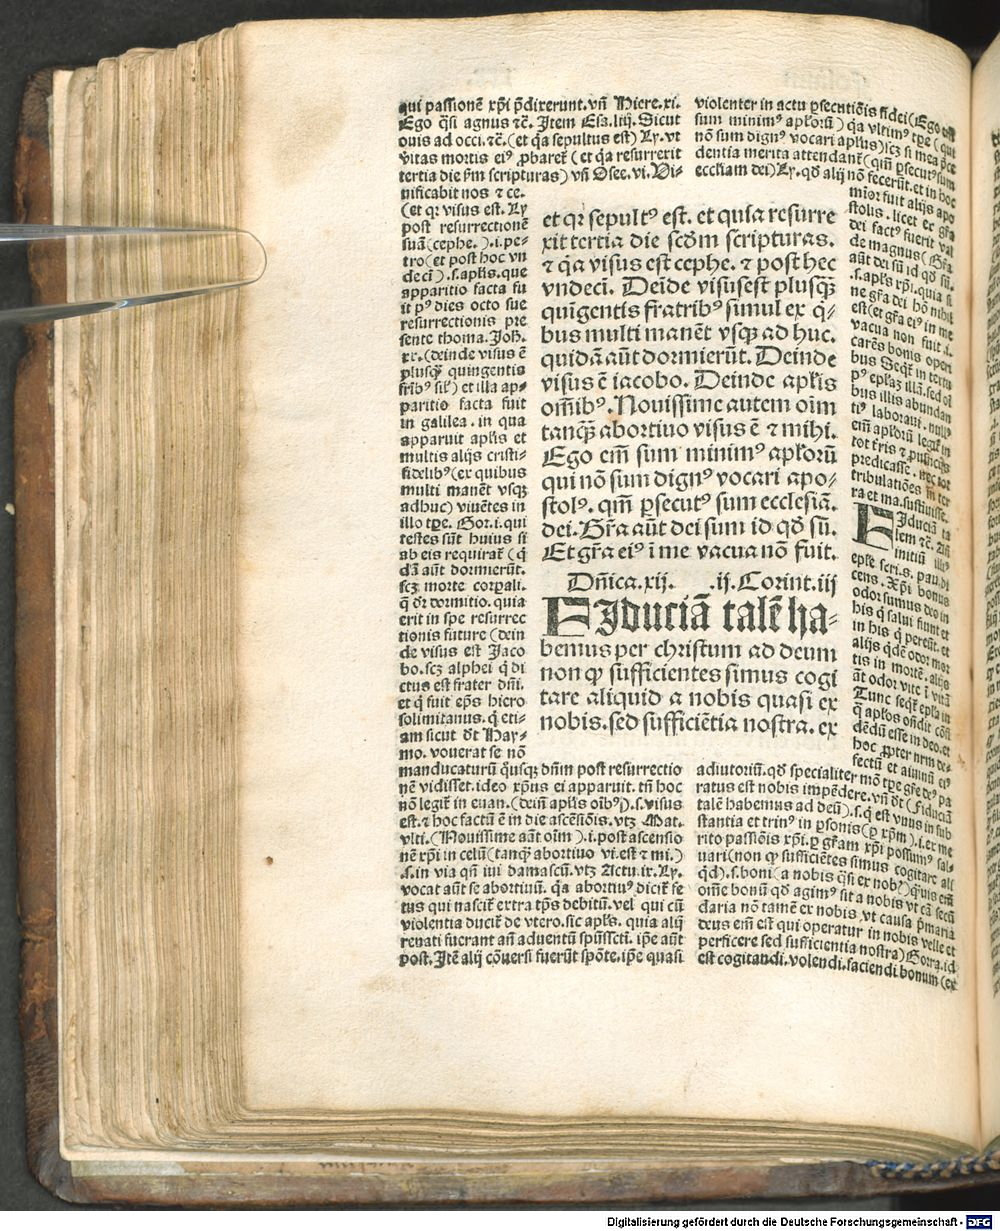 qui passionē xp̄i p̄dixerunt. vn̄ Hiere. xi.
Ego q̄si agnus ⁊c̄. Item Esa. liij. Sicut
ouis ad occi. ⁊c̄. (et q̄a sepultus est) Ly. vt
v̄itas mortis eiꝰ ꝓbaret᷑ (et q̄a resurrexit
tertia die ẜm scripturas) vn̄ Osee. vi. Ui-
uificabit nos ⁊ ce.
(et qꝛ visus est. Ly
post resurrectionē
suā (cephe.) .i. pe-
tro (et post hoc vn
decī) .s. apl̄is. que
apparitio facta fu
it pꝰ dies octo sue
resurrectionis pre
sente thoma. Joh̄.
xx. (deinde visus ē
plusqȝ quingentis
fr̄ibꝰ sil̄) et illa ap-
paritio facta fuit
in galilea. in qua
apparuit apl̄is et
multis alijs cristi-
fidelibꝰ (ex quibus
multi manēt vsqȝ
adhuc) viuētes in
illo tp̄e. Gor. i. qui
testes sūt huius si
ab eis requirat᷑ (q̄
dā aūt dormierūt.
scȝ morte corꝑali.
q̄ dr̄ dormitio. quia
erit in spe resurrec
tionis future (dein
de visus est Jaco
bo. scȝ alphei q̄ di
ctus est frater dn̄i.
et q̄ fuit ep̄s hiero
solimitanus. q̄ eti-
am sicut dt̄ Hay-
mo. vouerat se nō
manducaturū q̄usqȝ dn̄m post resurrectio
nē vidisset. ideo xp̄us ei apparuit. tn̄ hoc
nō legit᷑ in euan. (dein̄ apl̄is oībꝰ) .s. visus
est. ⁊ hoc factū ē in die ascēsiōis. vtȝ Mat.
vlti. (Nouissime aūt oīm) .i. post ascensio
nē xp̄i in celū (tanqȝ abortiuo vi. est ⁊ mi.)
.s. in via qn̄ iui damascū. vtȝ Actu. ix. Ly.
vocat aūt se abortiuū. q̄a abortiuꝰ dicit᷑ fe
tus qui nascit᷑ extra tp̄s debitū. vel qui cū
violentia ducit᷑ de vtero. sic apl̄s. quia alij
renati fuerant an̄ aduentū sp̄ūssc̄ti. ip̄e aūt
post. Itē alij cōuersi fuerūt spōte. ip̄e quasi
et qꝛ sepultꝰ est. et quia resurre
xit tertia die scd̄m scripturas.
⁊ q̄a visus est cephe. ⁊ post hec
vndecī. Deīde visusest plusqȝ
quīgentis fratribꝰ simul ex q̄-
bus multi manēt vsqȝ ad huc.
quidā aūt dormierūt. Deinde
visus ē iacobo. Deinde apl̄is
om̄ibꝰ. Nouissime autem oīm
tanqȝ abortiuo visus ē ⁊ mihi.
Ego em̄ sum minimꝰ apl̄orū
qui nō sum dignꝰ vocari apo-
stolꝰ. qm̄ ꝑsecutꝰ sum ecclesiā.
dei. Gr̄a aūt dei sum id qd̄ sū.
Et gr̄a eiꝰ ī me vacua nō fuit.
Dn̄ica. xij. .ij. Corint. iij
FIduciā talē ha-
bemus per christum ad deum
non ꝙ sufficientes simus cogi
tare aliquid a nobis quasi ex
nobis. sed sufficiētia nostra. ex
violenter in actu ꝑsecutiōis fidei (Ego em̄
sum minimꝰ apl̄orū) q̄a vltimꝰ tp̄e (qui
nō sum dignꝰ vocari apl̄us) scȝ si mea p̄ce
dentia merita attendant᷑ (qm̄ ꝑsecutꝰ sum
eccl̄iam dei) Ly. qd̄ alij nō fecerūt. et in hoc
mīor fuit alijs apo
stolis. licet ex gr̄a
dei factꝰ fuerit val
de magnus (Gr̄a
aūt dei sū id qd̄ sū.
.s. apl̄s xp̄i. quia si
ne gr̄a dei hō nihil
est (et gr̄a eiꝰ in me
vacua non fuit .i.
carēs bonis operi
bus
pꝰ epl̄az illā. sed oī
bus illis abundan
tiꝰ laboraui. nullꝰ
em̄ apl̄orū legit᷑ in
tot t̄ris ⁊
predicasse. nec tot
tribulatiōes
ra et ma. sustinuisse.
FIduciā ta
lem ⁊c̄. An̄
initiū illiꝰ
epl̄e scri. s. pau. di
cens. Xp̄i bonus
odor sumus deo in
his q̄ salui fiunt et
in his q̄ pereūt. et
alijs qd̄e odor mor
tis in mortē. alijs
āt odor vite ī vitā
Tunc seqt᷑ epl̄a in
q̄ apl̄os on̄dit cōfi
dēdū esse in deo. et
hoc ꝓpter nr̄m de-
fectū et diuinū eiꝰ
adiutoriū. qd̄ specialiter mō tp̄e gr̄e deꝰ pa
ratus est nobis impēdere. vn̄ dt̄ (Fiduciā
talē habemus ad deū) .s. q̄ est vnus in sub
stantia et trinꝰ in ꝑsonis (ꝑ xp̄m) .i. ex me
rito passiōis xp̄i. ꝑ gr̄am xp̄i possumꝰ sal-
uari (non ꝙ sufficiētes simus cogitare ali
qd̄) .s. boni (a nobis q̄si ex nob̄) q̄uis em̄
om̄e bonū qd̄ agimꝰ sit a nobis vt cā secū
daria nō tamē ex nobis vt causa p̄maria
deus em̄ est qui operatur in nobis velle et
perficere sed sufficientia nostra) Gorra. id
est cogitandi. volendi. faciendi bonum (ex
Digitalisierung gefördert durch die Deutsche Forschungsgemeinschaft - DFG